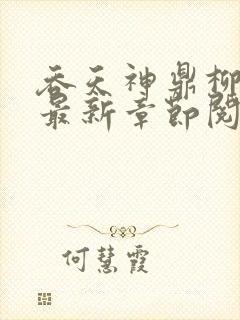 吞天神鼎柳
最新章节阅
何慧霞